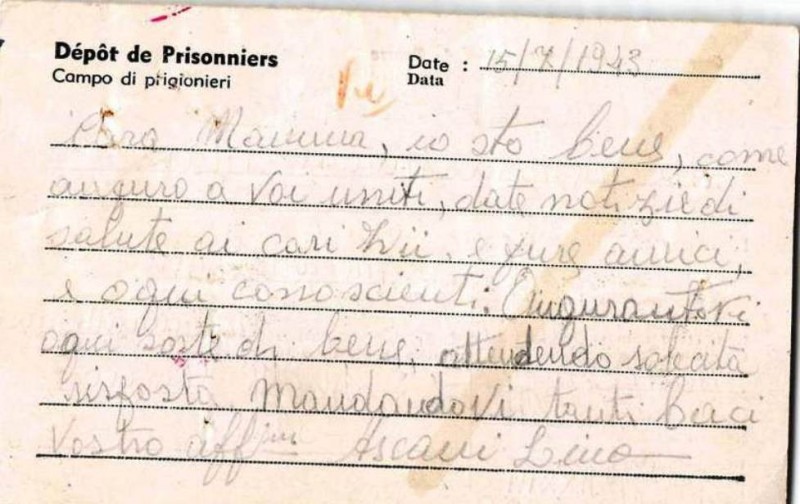 Dépôt de Prisonniers
Campo di prigionieri
Date : 15/7/1943
Data
Cara Mamma, io sto bene, come
auguro a Voi uniti, date notizie di
salute ai cari Zii, e pure amici,
e ogni conoscienti. Augurantovi
ogni sorte di bene, attendendo solecita
risposta Mandandovi tanti baci
Vostro aff.mo Ascani Lino